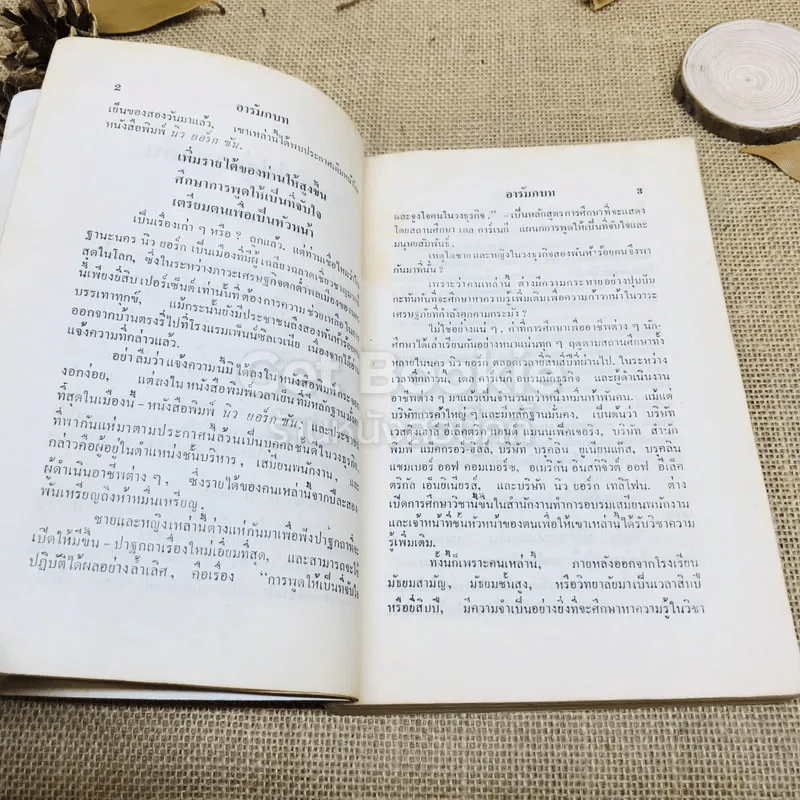 2
อารัมภบท
เย็นของสองวันมาแล้ว, เขาเหล่านี้ได้พบประกาศเต็มหน้าใน
หนังสือพิมพ์ นิว ยอร์ก ซัน.
เพิ่มรายได้ของท่านให้สูงขึ้น
ศึกษาการพูดให้เป็นที่จับใจ
เตรียมตนเพื่อเป็นหัวหน้า
เป็นเรื่องเก่า ๆ หรือ? ถูกแล้ว, แต่ท่านเชื่อไหมว่าใน
ฐานะนคร นิว ยอร์ก เป็นเมืองที่มีผู้เฉลียวฉลาดเชี่ยวชาญมากที่
สุดในโลก, ซึ่งในระหว่างภาวะเศรษฐกิจตกต่ำพลเมืองของนคร
นี้เพียงยี่สิบ เปอร์เซ็นต์ เท่านั้นที่ ต้องการ ความ ช่วยเหลือใน
บรรเทาทุกข์, แม้กระนั้นยังมีประชาชนสองพันห้าร้อย
ออกจากบ้านตรงรี่ไปที่โรงแรมเพ็นน์ซิลเวเนีย เนื่องจากได้อ่าน
แจ้งความที่กล่าวแล้ว.
อย่าลืมว่าแจ้งความนี้มิได้ลงในหนังสือพิมพ์กระจอก
งอกง่อย, แต่ลงใน หนังสือพิมพ์เวลาเย็นที่มีหลักฐานมั่นคง
ที่สุดในเมืองนี้ – หนังสือพิมพ์ นิว ยอร์ก ซัน, และประชาชน
ที่พากันแห่มาตามประกาศนี้ล้วนเป็นบุคคลชั้นดีในวงธุรกิจ,
กล่าวคือผู้อยู่ในตำแหน่งชั้นบริหาร, เสมียนพนักงาน, และ
ผู้ดำเนินอาชีพต่าง ๆ, ซึ่งรายได้ของคนเหล่านี้จากปีละสอง
พันเหรียญถึงห้าหมื่นเหรียญ.
ชายและหญิงเหล่านี้ต่างแห่กันมาเพื่อฟังปาฐกถาที่จะ
เปิดให้มีขึ้น – ปาฐกถาเรื่องใหม่เอี่ยมที่สุด, และสามารถจะใช้
ปฏิบัติได้ผลอย่างล้ำเลิศ, คือเรื่อง "การพูดให้เป็นที่จับใจ
อารัมภบท 3
และจูงใจคนในวงธุรกิจ." – เป็นหลักสูตรการศึกษาที่จะแสดง
โดยสถานศึกษา เดล คาร์เนกี แผนกการพูดให้เป็นที่จับใจและ
มนุษยสัมพันธ์.
เหตุใดชายและหญิงในวงธุรกิจสองพันห้าร้อยคนจึงพา
กันมาที่นั้น?
เพราะว่าคนเหล่านี้ ต่างมีความกระหายอย่างปุบปับ
กะทันหันที่จะศึกษาหาความรู้เพิ่มเติมเพื่อความก้าวหน้าในวาระ
เศรษฐภัยที่กำลังคุกคามกระนั้น?
ไม่ใช่อย่างแน่ ๆ. คำที่การศึกษาเพื่ออาชีพต่าง ๆ นัก-
ศึกษาได้เล่าเรียนกันอย่างหนาแน่นทุก ๆ ฤดูตามสถานศึกษาทั้ง
หลายในนคร นิว ยอร์ก ตลอดเวลายี่สิบสี่ปีที่ผ่านไป. ในระหว่าง
เวลาที่กล่าวนี้ เดล คาร์เนกี อบรมนักธุรกิจ และผู้ดำเนินงาน
อาชีพต่าง ๆ มาแล้วเป็นจำนวนกว่าหนึ่งหมื่นห้าพันคน. แม้แต่
บริษัทการค้าใหญ่ ๆ และมีหลักฐานมั่นคง, เป็นต้นว่า บริษัท
เวสติงเฮาส์ อีเล็คตริค แมนูแฟ็คเจอริง, บริษัท สำนัก
พิมพ์ แม็คกรอว์-ฮิลล์, บรุคลิน ยูเนียนแก๊ส, บรุคลิน
แชมเบอร์ ออฟ คอมเมอร์ซ, อเมริกัน อินสติจิวต์ ออฟ อีเล็ค
ตริกัล เอ็นยิเนียรส์, และบริษัท นิว ยอร์ก เทลิโฟน. ต่าง
เปิดการศึกษาวิชานี้ขึ้นในสำนักงานทำการอบรมเสมียนพนักงาน
และเจ้าหน้าที่ชั้นหัวหน้าของตนเพื่อให้เขาเหล่านี้ได้รับวิชาความ
รู้เพิ่มเติม.
ทั้งนี้ก็เพราะคนเหล่านี้, ภายหลังออกจากโรงเรียน
มัธยมสามัญ, มัธยมชั้นสูง, หรือวิทยาลัยมาเป็นเวลาสิบปี
หรือยี่สิบปี, มีความจำเป็นอย่างยิ่งที่จะศึกษาหาความรู้ในวิชา
Got Bookie
ร้านหนังสือเก่าที่